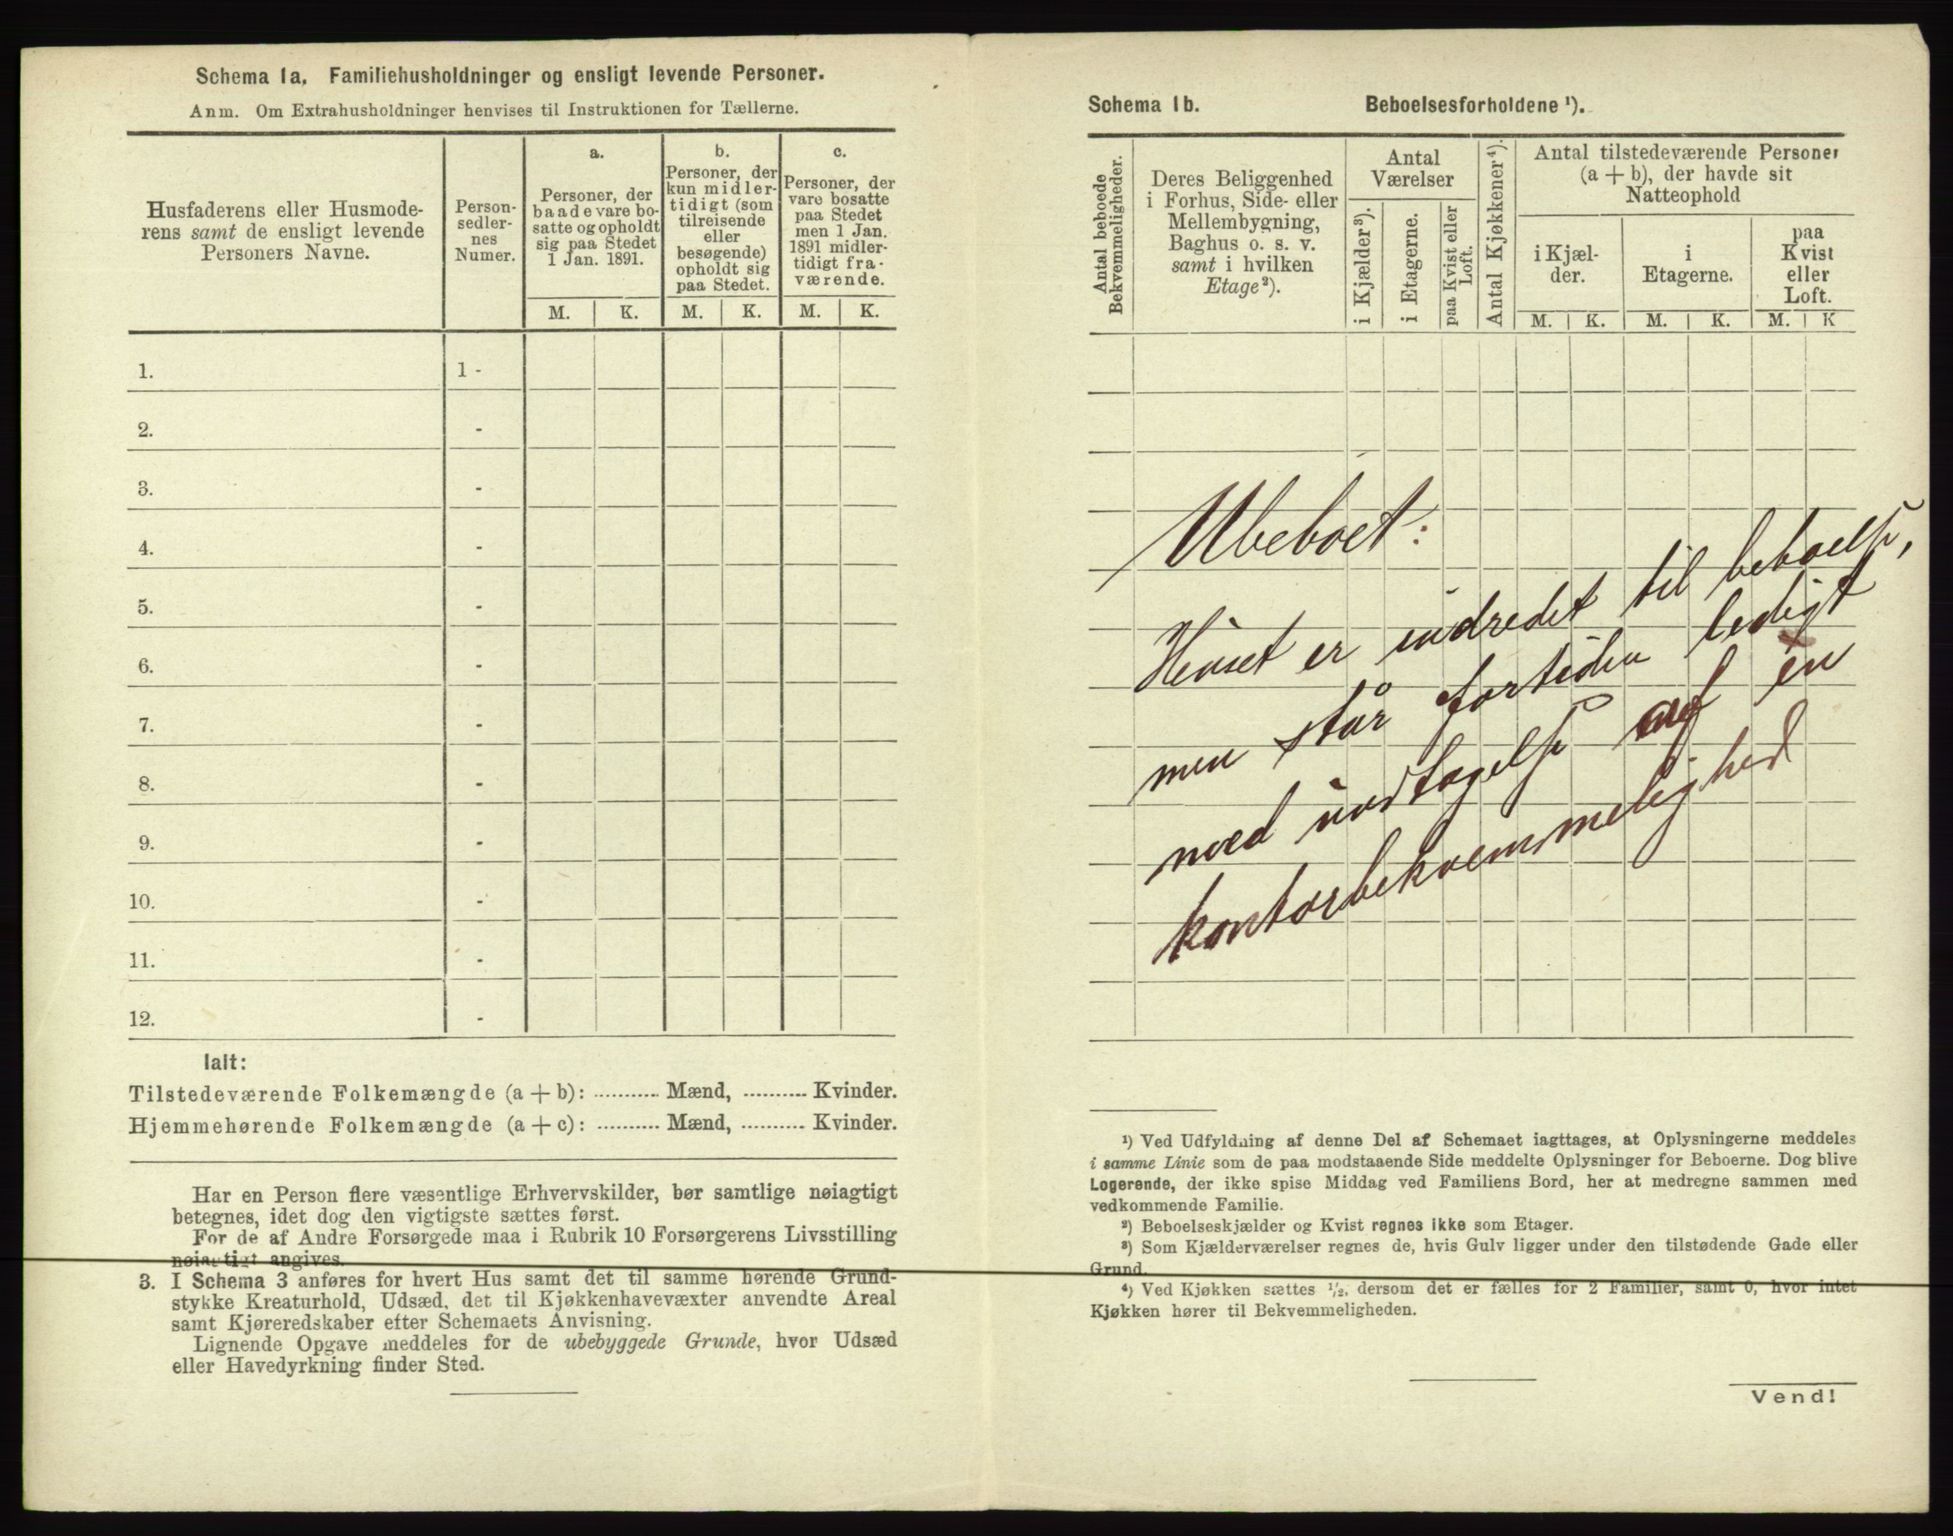 Schema 1a. Familiehusholdninger og ensligt levende Personer.
Anm. Om Extrahusholdninger henvises til Instruktionen for Tællerne.
Husfaderens eller Husmode-
rens samt de ensligt levende
Personers Navne.
Person-
sedler-
nes
Numer.
a.
Personer, der
baade vare bo-
satte og opholdt
sig paa Stedet
1 Jan. 1891.
b.
Personer, der
kun midler-
tidigt (som
tilreisende
eller
besøgende)
opholdt sig
paa Stedet.
c.
Personer, der
vare bosatte
paa Stedet
men 1 Jan.
1891 midler-
tidigt fra-
værende.
M. K. M. K. M. K.
1. 1 -
2. -
3. -
4. -
5. -
6. -
7. -
8. -
9. -
10. -
11. -
12. -
Ialt:
Tilstedeværende Folkemængde (a + b): .......... Mænd, .......... Kvinder.
Hjemmehørende Folkemængde (a + c): .......... Mænd, .......... Kvinder.
Har en Person flere væsentlige Erhvervskilder, bør samtlige nøiagtigt
betegnes, idet dog den vigtigste sættes først.
For de af Andre Forsørgede maa i Rubrik 10 Forsørgerens Livsstilling
nøiagtigt angives.
3. I Schema 3 anføres for hvert Hus samt det til samme hørende Grund-
stykke Kreaturhold, Udsæd, det til Kjøkkenhavevæxter anvendte Areal
samt Kjøreredskaber efter Schemaets Anvisning.
Lignende Opgave meddeles for de ubebyggede Grunde, hvor Udsæd
eller Havedyrkning finder Sted.
Schema 1b. Beboelsesforholdene ¹).
Antal beboede
Bekvemmeligheder.
Deres Beliggenhed
i Forhus, Side- eller
Mellembygning,
Baghus o. s. v.
samt i hvilken
Etage²).
Antal
Værelser
i Kjælder³).
i Etagerne.
paa Kvist eller
Loft.
Antal Kjøkkener⁴).
Antal tilstedeværende Personer
(a + b), der havde sit
Natteophold
i Kjæl-
der.
i
Etagerne.
paa
Kvist
eller
Loft.
M. K. M. K. M. K
Ubeboet:
Huset er indredet til beboelse,
men står fortiden ledigt
med undtagelse af én
kontorbekvemmelighed
¹) Ved Udfyldning af denne Del af Schemaet iagttages, at Oplysningerne meddeles
i samme Linie som de paa modstaaende Side meddelte Oplysninger for Beboerne. Dog blive
Logerende, der ikke spise Middag ved Familiens Bord, her at medregne sammen med
vedkommende Familie.
²) Beboelseskjælder og Kvist regnes ikke som Etager.
³) Som Kjælderværelser regnes de, hvis Gulv ligger under den tilstødende Gade eller
Grund.
⁴) Ved Kjøkken sættes ½, dersom det er fælles for 2 Familier, samt 0, hvor intet
Kjøkken hører til Bekvemmeligheden.
Vend!